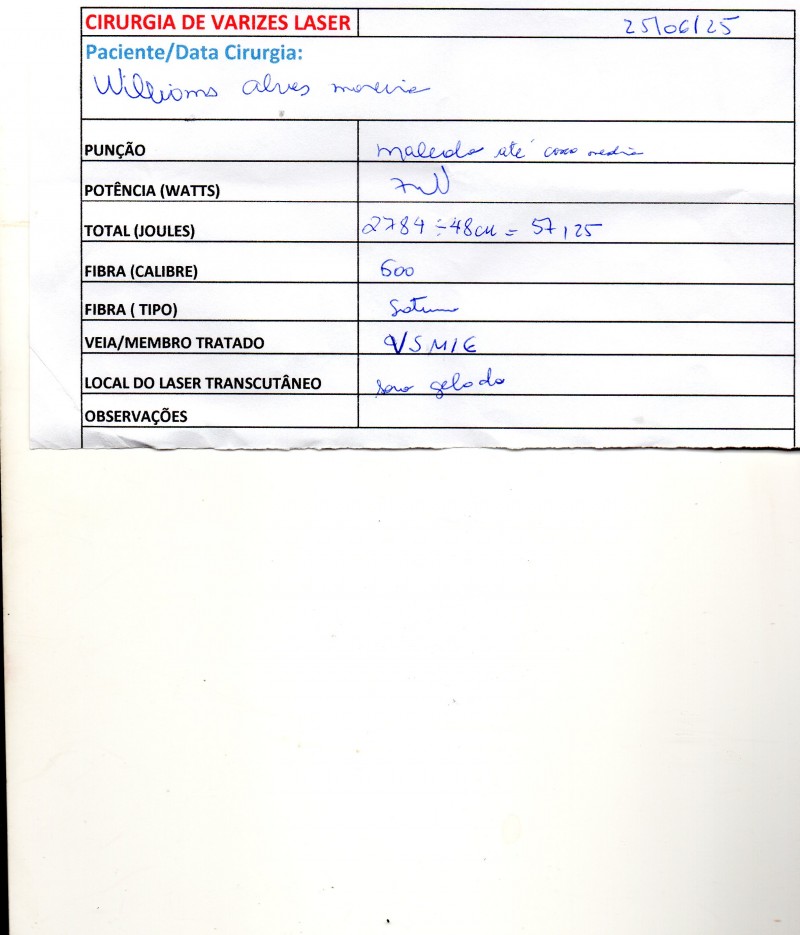 CIRURGIA DE VARIZES LASER 25/06/25
Paciente/Data Cirurgia:
Willioms Alves moreira
PUNÇÃO maleolo até coxa media
POTÊNCIA (WATTS) 7W
TOTAL (JOULES) 2784 ÷ 48cm = 57,25
FIBRA (CALIBRE) 600
FIBRA ( TIPO)
VEIA/MEMBRO TRATADO VSMIE
LOCAL DO LASER TRANSCUTÂNEO soro gelado
OBSERVAÇÕES